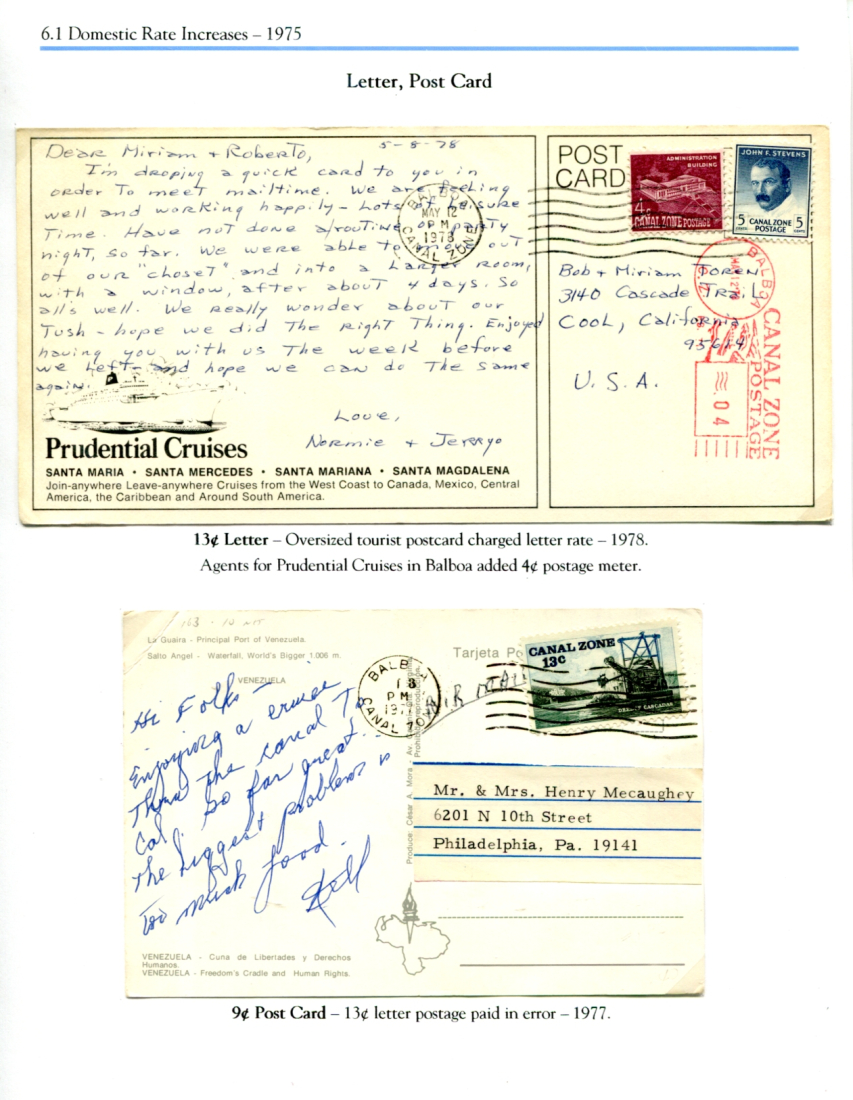 6.1 Domestic Rate Increases – 1975
Letter, Post Card
5-8-78
Dear Miriam + Roberto,
I'm droping a quick card to you in
order To meet mailtime. We are feeling
well and working happily - Lots of Leisure
Time. Have not done a routine or party
night, so far. We were able to move out
of our "closet" and into a Larger room,
with a window, after about 4 days. So
all's well. We Really wonder about our
Tush - hope we did The Right Thing. Enjoyed
having you with us The week before
we Left - and hope we can do The same
again.
Love,
Normie + Jerryo
Prudential Cruises
SANTA MARIA • SANTA MERCEDES • SANTA MARIANA • SANTA MAGDALENA
Join-anywhere Leave-anywhere Cruises from the West Coast to Canada, Mexico, Central
America, the Caribbean and Around South America.
BALBOA
MAY 12
PM
1978
CANAL ZONE
POST
CARD
ADMINISTRATION
BUILDING
4c
CANAL ZONE POSTAGE
JOHN F. STEVENS
5 CANAL ZONE 5
CENTS POSTAGE CENTS
Bob + Miriam Toren
3140 Cascade Trail
Cool, California
95614
U.S.A.
BALBOA
CANAL ZONE
POSTAGE
04
13¢ Letter – Oversized tourist postcard charged letter rate – 1978.
Agents for Prudential Cruises in Balboa added 4¢ postage meter.
163 - 10
La Guaira - Principal Port of Venezuela.
Salto Angel - Waterfall, World's Bigger 1.006 m.
VENEZUELA
Hi Folks -
Enjoying a cruise
Thru the canal To
Cal. So far great.
The biggest problem is
Too much food.
VENEZUELA - Cuna de Libertades y Derechos
Humanos.
VENEZUELA - Freedom's Cradle and Human Rights.
BALBOA
PM
1977
CANAL ZONE
Tarjeta
AIR MAIL
CANAL ZONE
13c
DREDGE CASCADAS
Produce: César A. Mora - Av.
Prohibida
Mr. & Mrs. Henry Mecaughey
6201 N 10th Street
Philadelphia, Pa. 19141
9¢ Post Card – 13¢ letter postage paid in error – 1977.